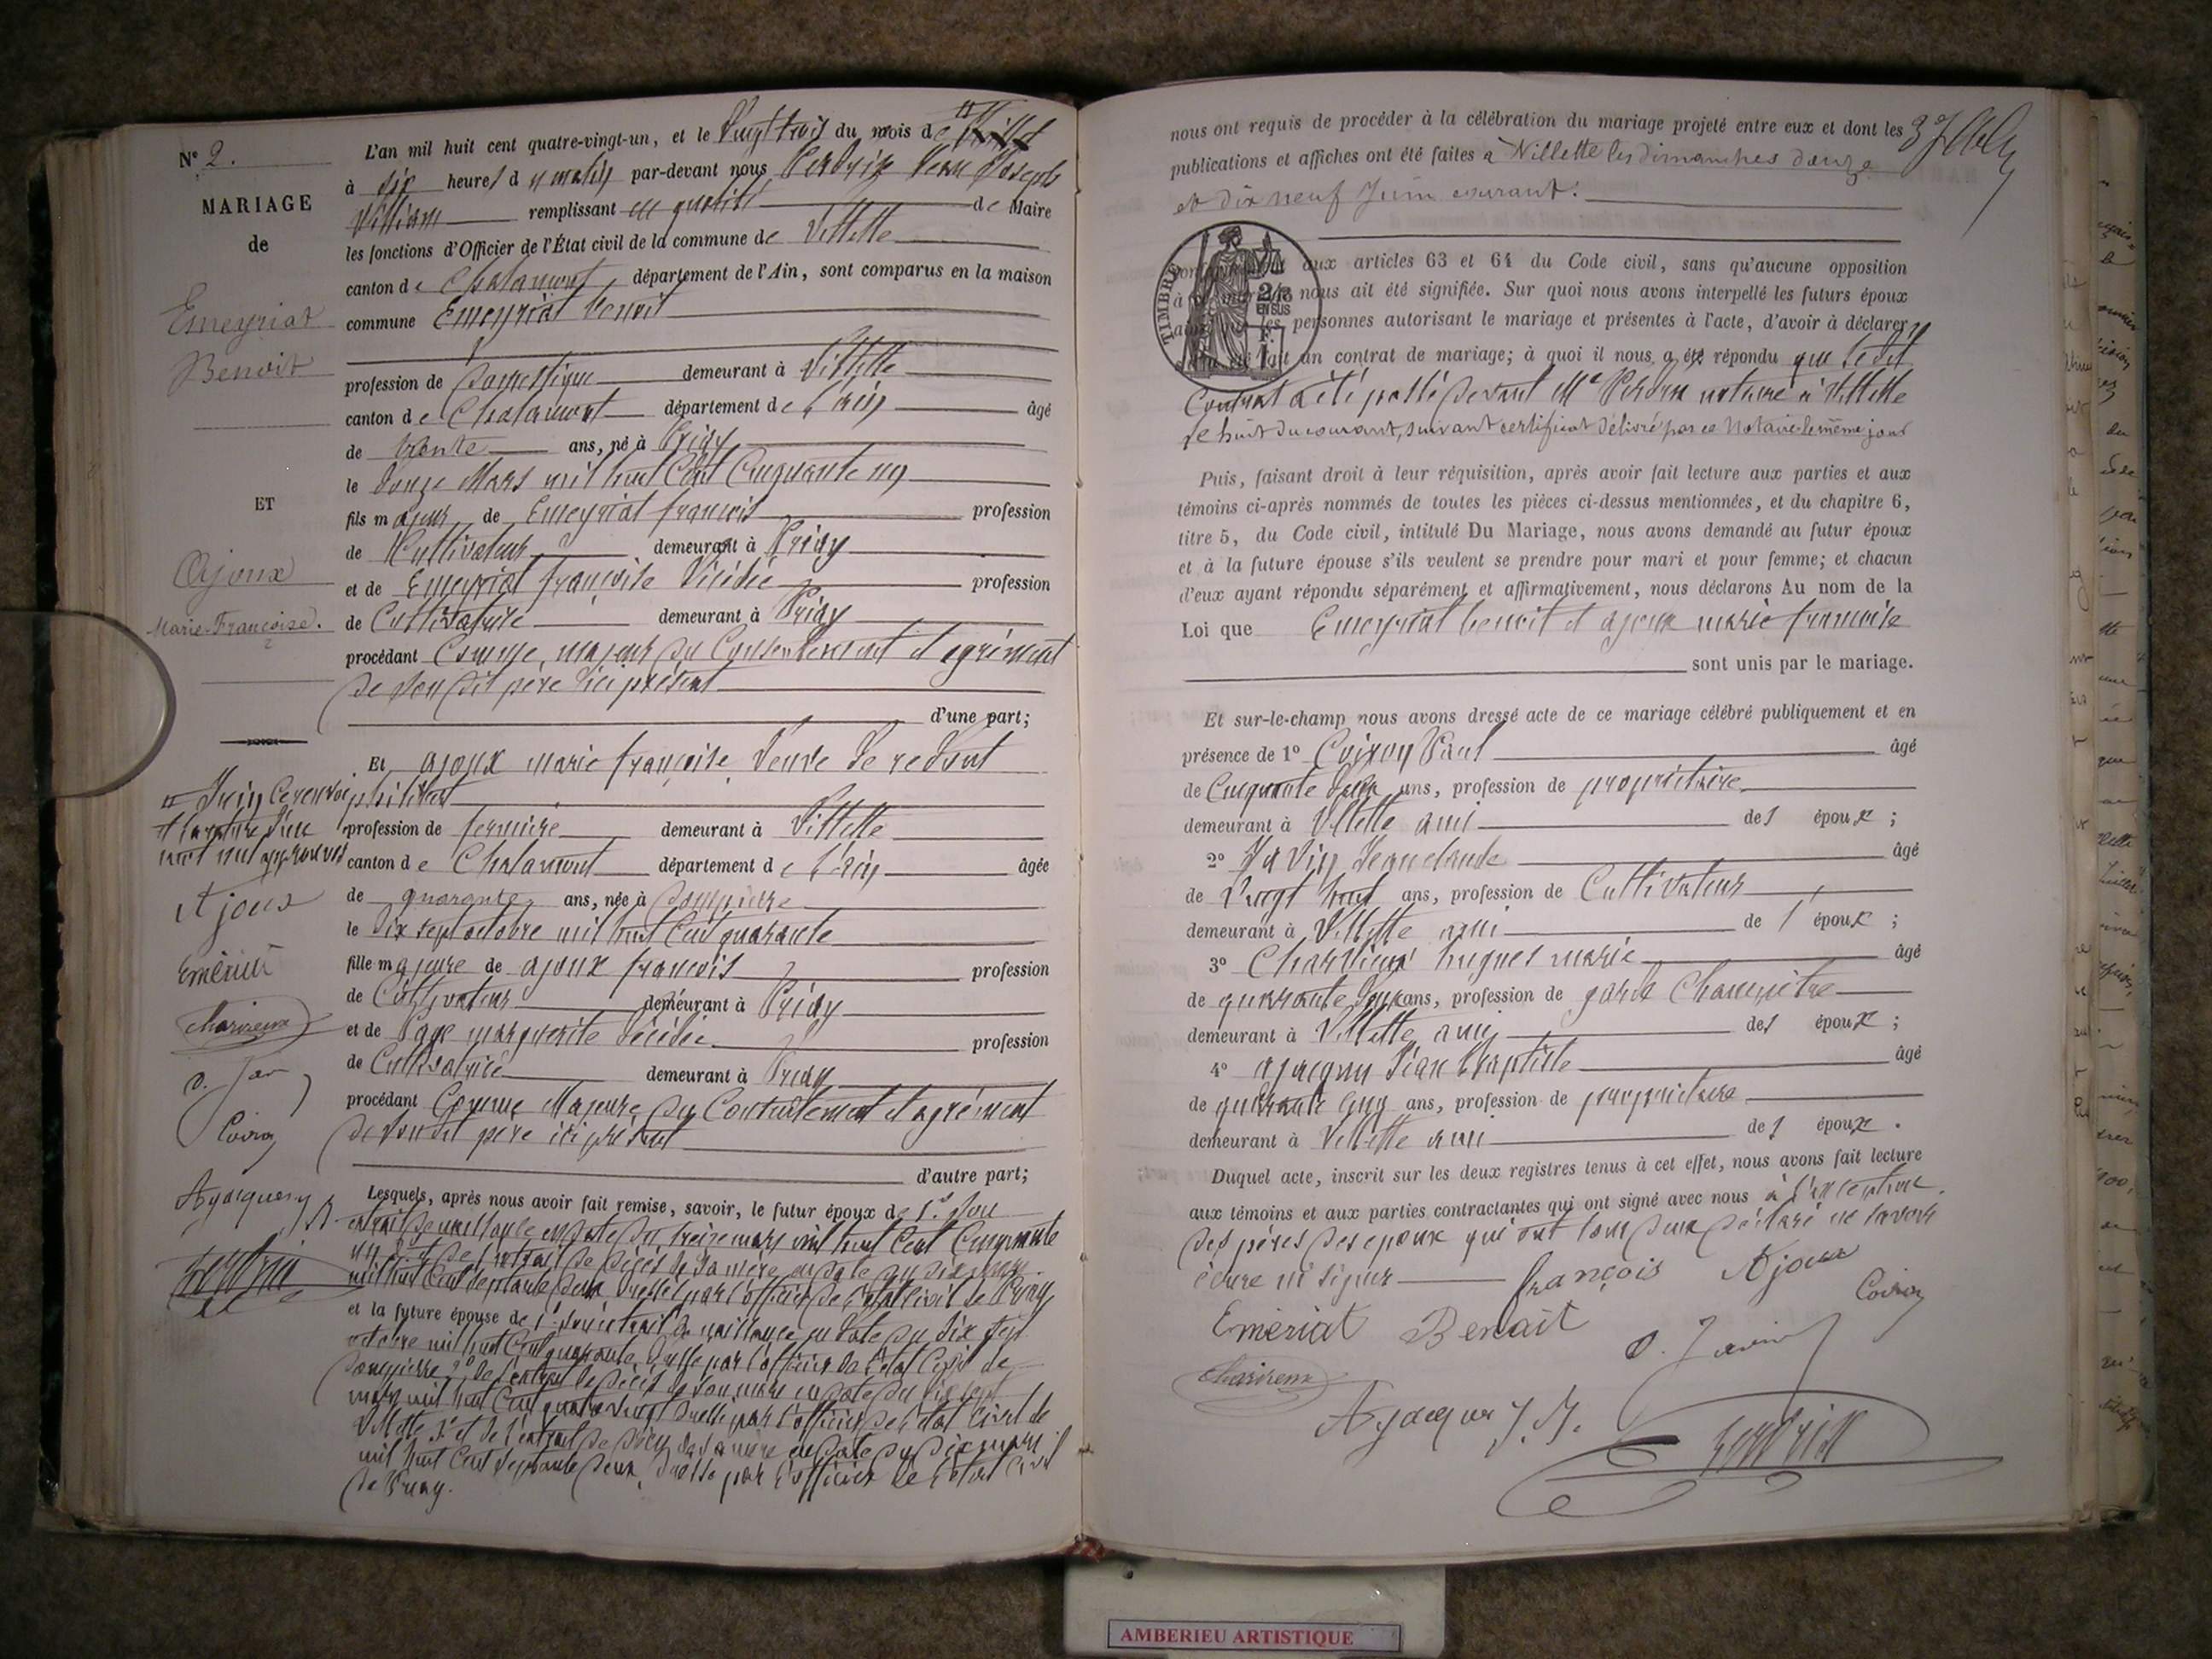 N° 2.
MARIAGE
de
Emeyriat
Benoit
ET
Ajoux
Marie-Françoise.
Juin Ce renvoi
et la rature d'un
mot nul approuvés
Ajoux
Emériat
Charvieux
Coiron
Ajacques
L'an mil huit cent quatre-vingt-un, et le Vingt trois du mois de
à dix heures du matin par-devant nous Jean Joseph
William remplissant en qualité de Maire
les fonctions d'Officier de l'État civil de la commune de Villette
canton de Chalamont, département de l'Ain, sont comparus en la maison
commune Emeyriat benoit
profession de Domestique demeurant à Villette
canton de Chalamont département de l'ain âgé
de trente ans, né à Priay
le douze Mars mil huit Cent Cinquante un
fils majeur de Emeyriat françois profession
de Cultivateur demeurant à Priay
et de Emeyriat françoise Décédée profession
de Cultivatrice demeurant à Priay
procédant Comme majeur du Consentement et agrément
de son dit père ici présent
d'une part;
Et ajoux marie françoise Veuve de
philibert
profession de fermière demeurant à Villette
canton de Chalamont département de l'ain âgée
de quarante ans, née à Dompierre
le dix sept octobre mil huit Cent quarante
fille majeure de ajoux françois profession
de Cultivateur demeurant à Priay
et de Page marguerite décédée profession
de Cultivatrice demeurant à Priay
procédant Comme Majeure du Consentement et agrément
de son dit père ici présent
d'autre part;
Lesquels, après nous avoir fait remise, savoir, le futur époux de 1° son
extrait de naissance en date du treize mars mil huit Cent Cinquante
un 2° et de l'extrait de décès de sa mère en date du dix mars
mil huit Cent septante deux dressé par l'officier de l'état civil de Priay
et la future épouse de 1° son extrait de naissance en date du dix sept
octobre mil huit Cent quarante dressé par l'officier de l'état Civil de
Dompierre 2° de l'extrait de décès de son mari en date du dix sept
mars mil huit Cent quatre vingt dressé par l'officier de l'état Civil de
Villette 3° et de l'extrait de décès de sa mère en date du dix mars
mil huit Cent septante deux, dressé par l'officier de l'état Civil
de Priay.
nous ont requis de procéder à la célébration du mariage projeté entre eux et dont les
publications et affiches ont été faites à Villette les dimanches douze
et dix neuf Juin courant.
TIMBRE
aux articles 63 et 64 du Code civil, sans qu'aucune opposition
à ce mariage nous ait été signifiée. Sur quoi nous avons interpellé les futurs époux
les personnes autorisant le mariage et présentes à l'acte, d'avoir à déclarer
fait un contrat de mariage; à quoi il nous a été répondu que le dit
Contrat a été passé devant Me notaire à Villette
le huit du courant, suivant certificat délivré par ce Notaire le même jour
Puis, faisant droit à leur réquisition, après avoir fait lecture aux parties et aux
témoins ci-après nommés de toutes les pièces ci-dessus mentionnées, et du chapitre 6,
titre 5, du Code civil, intitulé Du Mariage, nous avons demandé au futur époux
et à la future épouse s'ils veulent se prendre pour mari et pour femme; et chacun
d'eux ayant répondu séparément et affirmativement, nous déclarons Au nom de la
Loi que Emeyriat benoit et ajoux marie françoise
sont unis par le mariage.
Et sur-le-champ nous avons dressé acte de ce mariage célébré publiquement et en
présence de 1° Coiron Paul âgé
de Cinquante deux ans, profession de propriétaire
demeurant à Villette ami des époux;
2° Javin Jean claude âgé
de Vingt huit ans, profession de Cultivateur
demeurant à Villette ami de l'époux;
3° Charvieux hugues marie âgé
de quarante deux ans, profession de garde Champêtre
demeurant à Villette ami des époux;
4° ajacques Jean Baptiste âgé
de quarante cinq ans, profession de propriétaire
demeurant à Villette ami des époux.
Duquel acte, inscrit sur les deux registres tenus à cet effet, nous avons fait lecture
aux témoins et aux parties contractantes qui ont signé avec nous à l'exception
des pères des époux qui ont tous deux déclaré ne savoir
écrire ni signer françois Ajoux
Coiron
Emériat Benait
Charvieux
Ajacques J. B.
AMBERIEU ARTISTIQUE